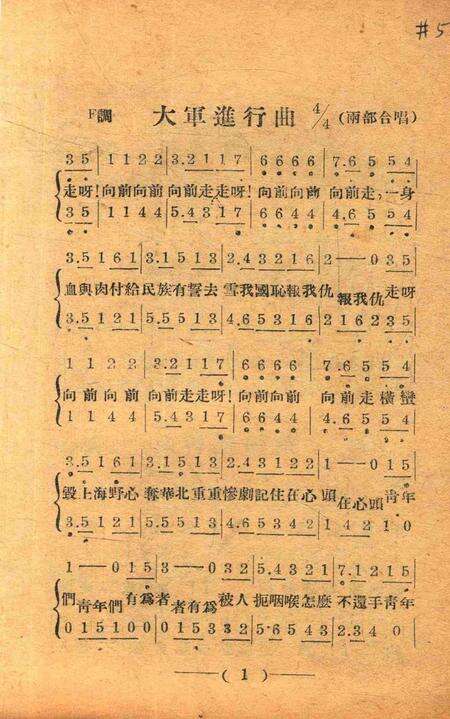 #5
F調 大軍進行曲 4/4 (兩部合唱)
3 5 | 1 1 2 2 | 3.2 1 1 7 | 6 6 6 6 | 7.6 5 5 4
走呀! 向前向前 向前走走呀! 向前向前 向前走,一身
3 5 | 1 1 4 4 | 5.4 3 1 7 | 6 6 4 4 | 4.6 5 5 4
3.5 1 6 1 | 3.1 5 1 3 | 2.4 3 2 1 6 | 2 — 0 3 5
血與肉付給民族有誓去 雪我國恥報我仇 報我仇 走呀
3.5 1 2 1 | 5.5 5 1 3 | 4.6 5 3 1 6 | 2 1 6 2 3 5
1 1 2 2 | 3.2 1 1 7 | 6 6 6 6 | 7.6 5 5 4
向前向前 向前走走呀! 向前向前 向前走 橫蠻
1 1 4 4 | 5.4 3 1 7 | 6 6 4 4 | 4.6 5 5 4
3.5 1 6 1 | 3.1 5 1 3 | 2.4 3 1 2 2 | 1 — 0 1 5
毀上海野心 奪華北重重慘劇記住在心頭 在心頭 青年
3.5 1 2 1 | 5.5 5 1 3 | 4.6 5 3 4 2 | 1 4 2 1 0
1 — 0 1 5 | 3 — 0 3 2 | 5.4 3 2 1 | 7.1 2 1 5
們 青年們 有爲者 者有爲 被人 扼咽喉怎麼 不還手青年
0 1 5 1 0 0 | 0 1 5 3 3 2 | 5.6 5 4 3 | 2.3 4 0
( 1 )